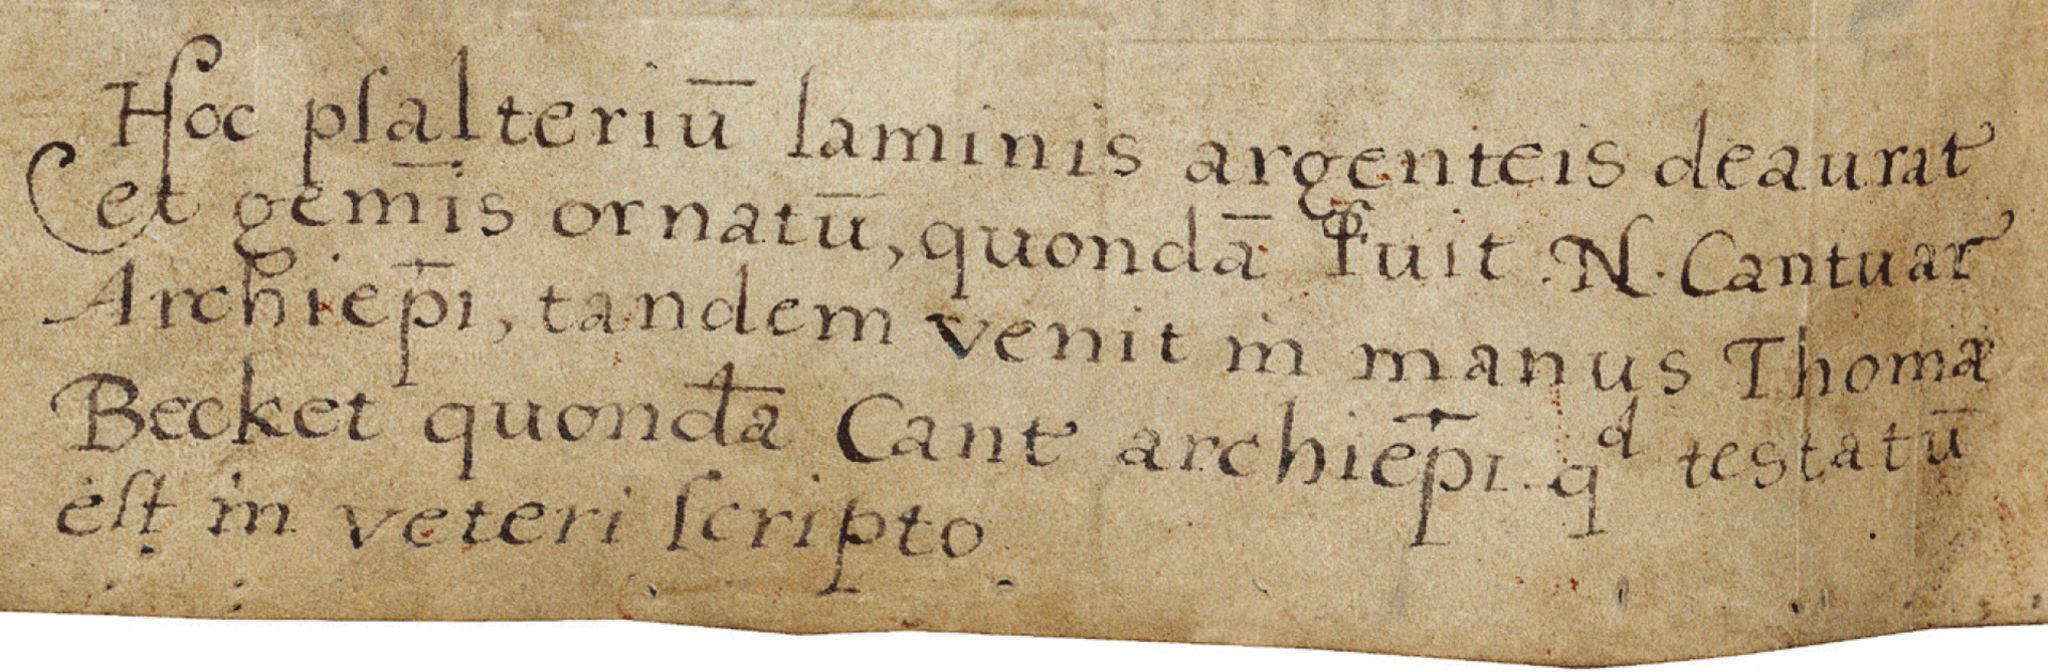 Hoc pſalteriū laminis argenteis deaurat
et gem̄is ornatū, quondā fuit .N. Cantuar
Archiep̄i, tandem venit in manus Thomæ
Becket quondā Cant archiep̄i. qᵈ testatū
eſt in veteri ſcripto